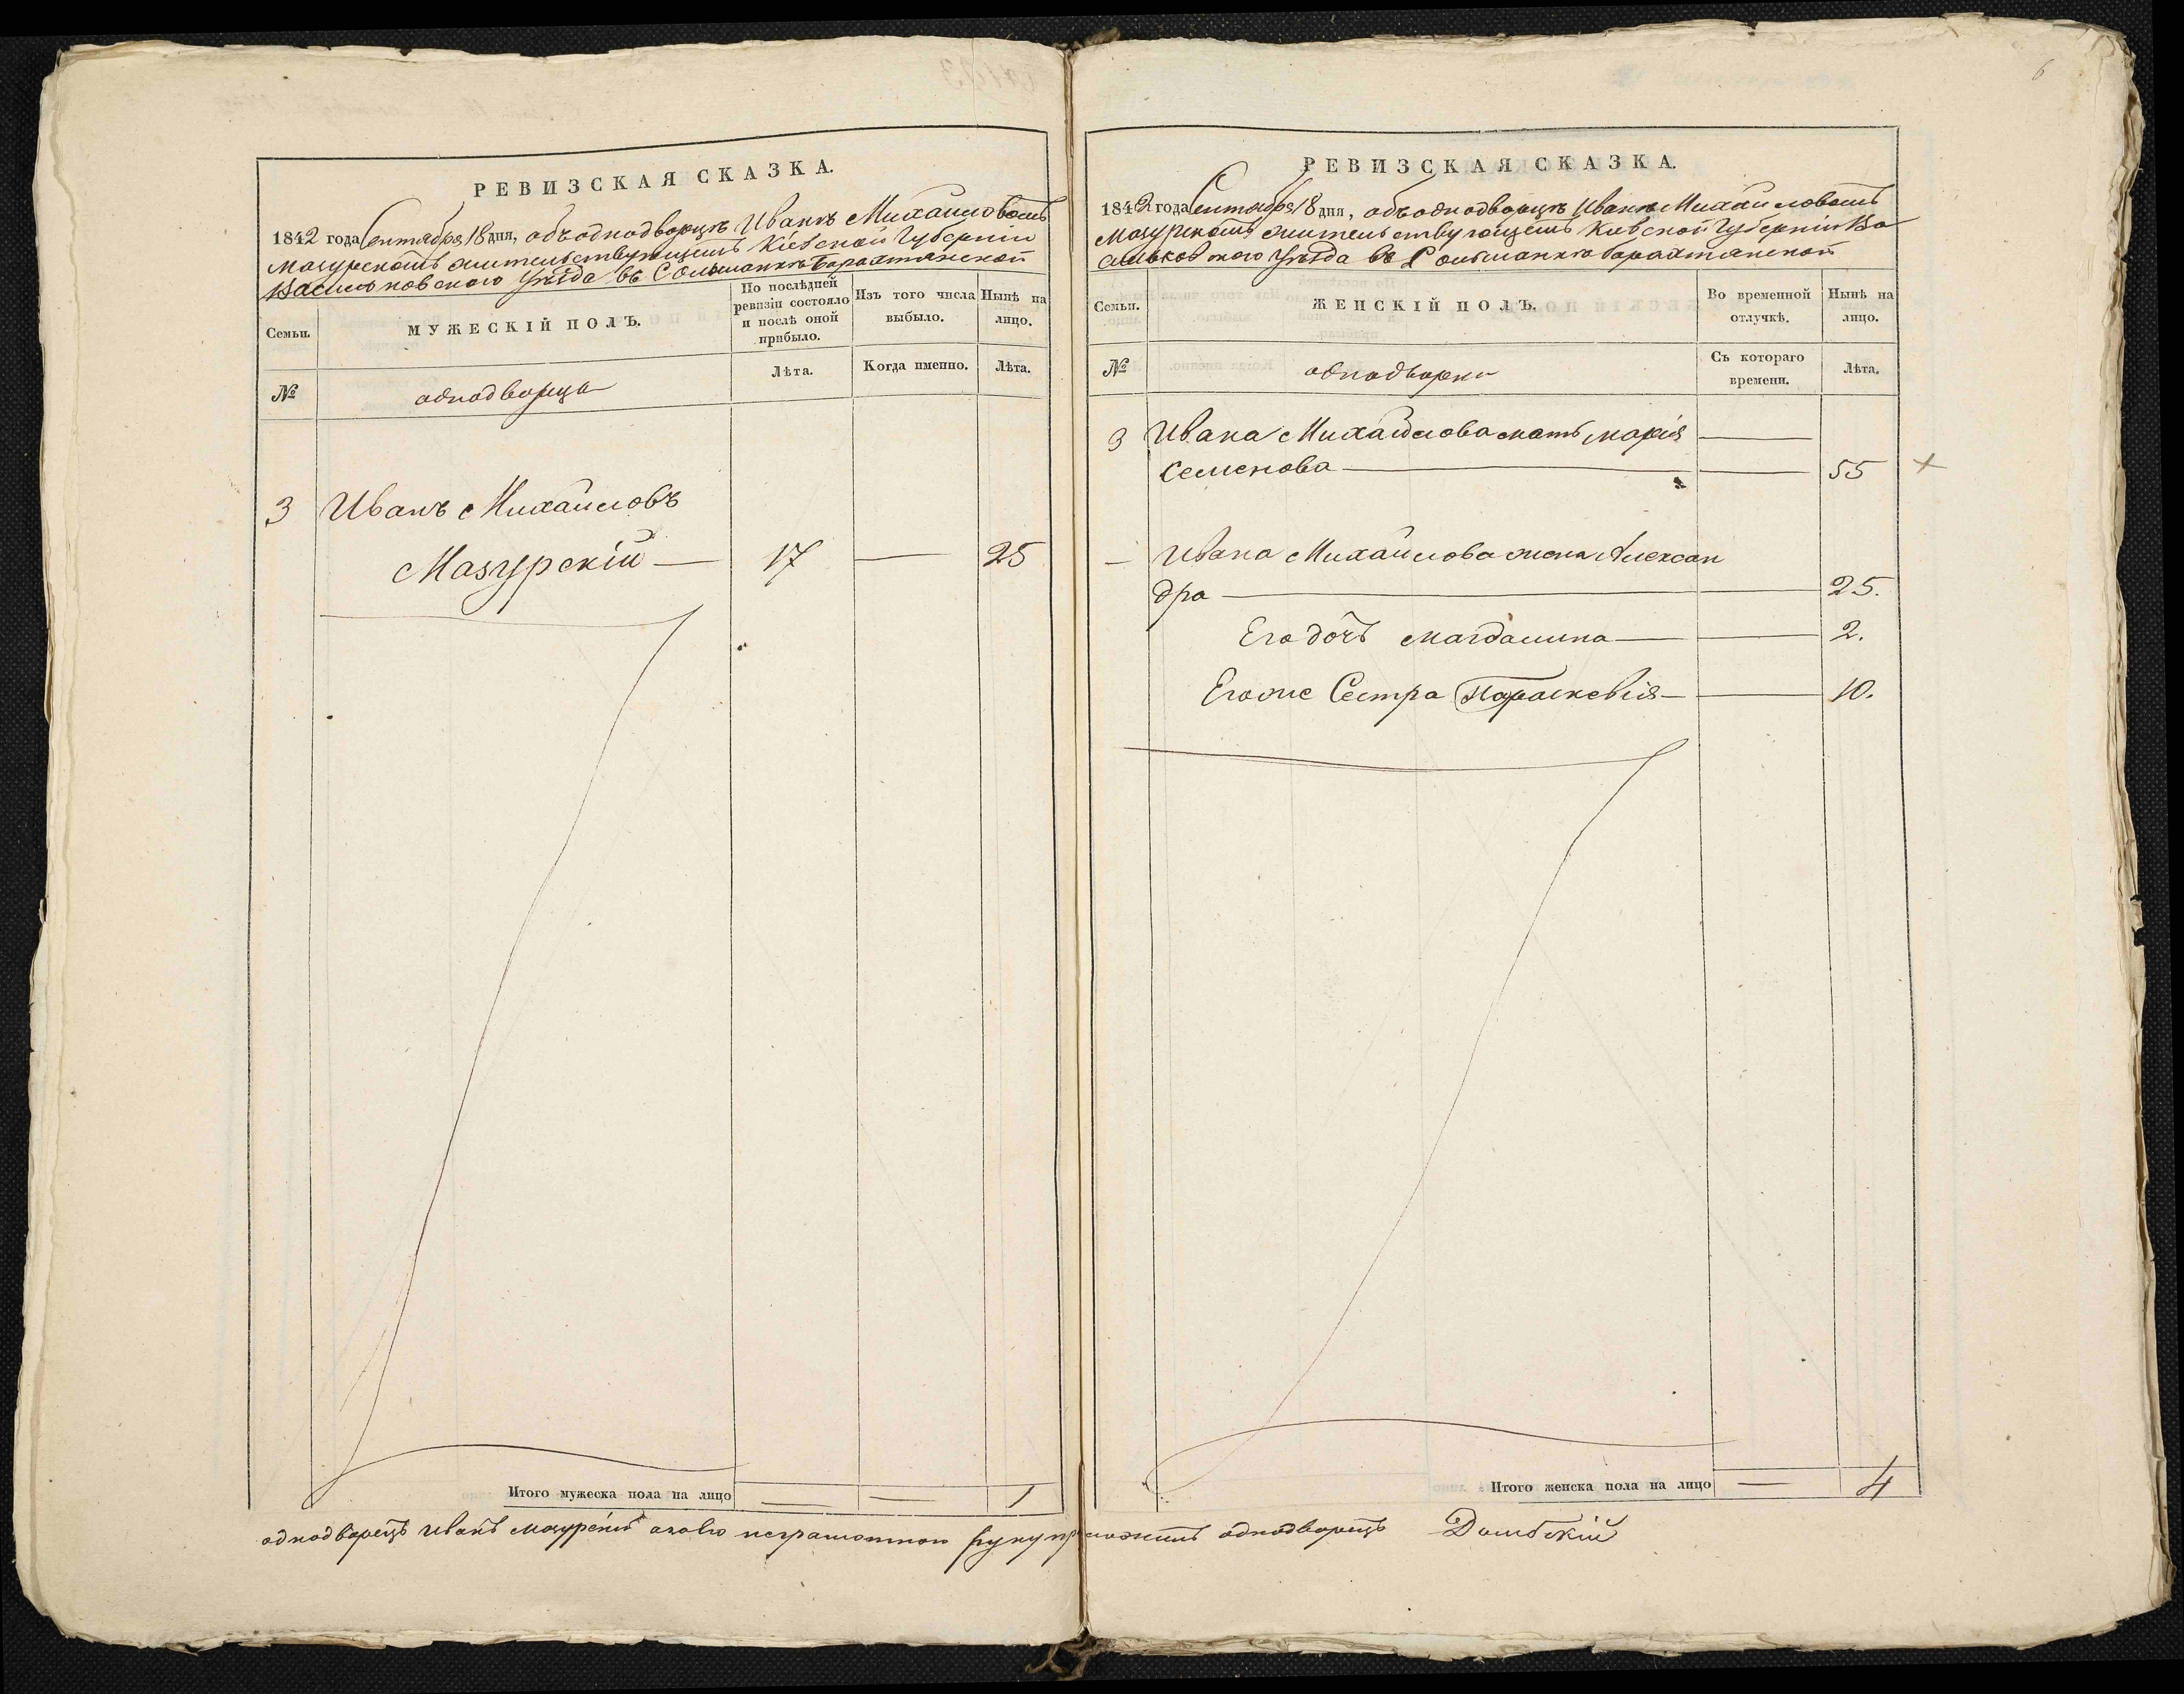 РЕВИЗСКАЯ СКАЗКА.
1842 года Сентября 18 дня, объ однодворцѣ Иванѣ Михайловомъ
Мазурскомъ жительствующемъ Кіевской Губерніи
Васильковскаго уѣзда въ Сольтанкѣ Барахтянской
Семьи.
МУЖЕСКІЙ ПОЛЪ.
По послѣдней ревизіи состояло и послѣ оной прибыло.
Изъ того числа выбыло.
Нынѣ на лицо.
№
однодворцы
Лѣта.
Когда именно.
Лѣта.
3 Иванъ Михайловъ
Мазурскій — 17 — 25
Итого мужеска пола на лицо — — 1
6
РЕВИЗСКАЯ СКАЗКА.
1842 года Сентября 18 дня, объ однодворцѣ Иванѣ Михайловомъ
Мазурскомъ жительствующемъ Кіевской Губерніи Ва
сильковскаго уѣзда въ Сольтанкѣ Барахтянской
Семьи.
ЖЕНСКІЙ ПОЛЪ.
Во временной отлучкѣ.
Нынѣ на лицо.
№
однодворки
Съ котораго времени.
Лѣта.
3 Ивана Михайлова мать Марія —
Семенова — — 55
— Ивана Михайлова жена Алексан
дра — — 25.
Его дочь Магдалина — — 2.
Его же Сестра Параскевія — — 10.
Итого женска пола на лицо — 4
однодворецъ Иванъ Мазурскій а за него неграмотнаго руку приложилъ однодворецъ Домбскій